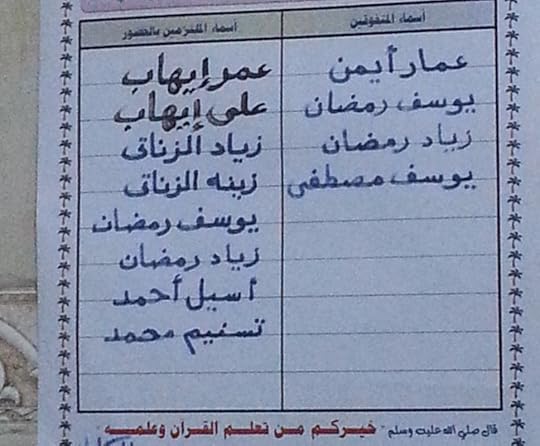 أسماء المتفوقين
أسماء الملتزمين بالحضور
عمار أيمن
عمر إيهاب
يوسف رمضان
على إيهاب
زياد رمضان
زياد الزناتى
يوسف مصطفى
زينه الزناتى
يوسف رمضان
زياد رمضان
أسيل أحمد
تسنيم محمد
قال صلي الله عليه وسلم " خيركم من تعلم القرآن وعلمه "